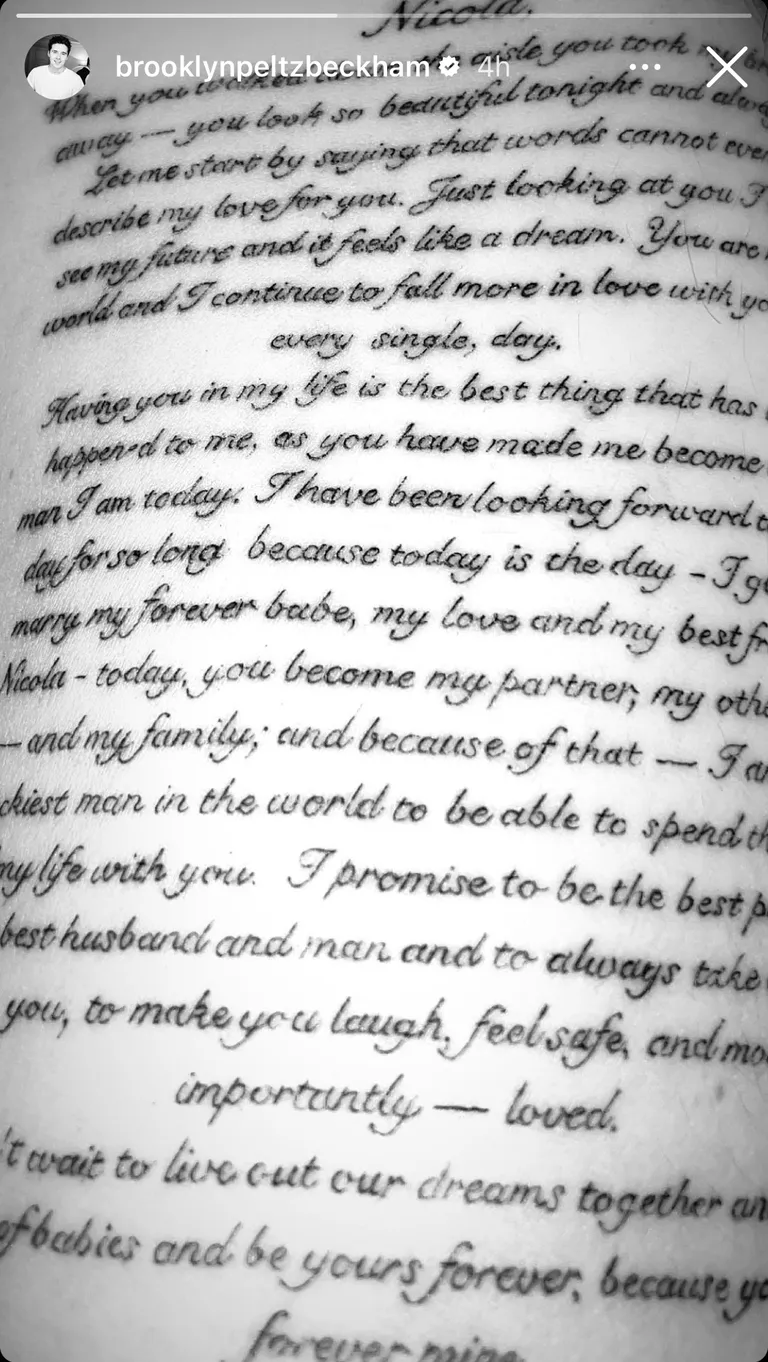 Nicola.
brooklynpeltzbeckham 4h
When you walked the aisle you took my
away — you look so beautiful tonight and
Let me start by saying that words cannot
describe my love for you. Just looking at you I
see my future and it feels like a dream. You are
world and I continue to fall more in love with
every single, day.
Having you in my life is the best thing that has
happened to me, as you have made me become
man I am today. I have been looking forward
day for so long because today is the day - I
marry my forever babe, my love and my best
Nicola - today, you become my partner, my
— and my family; and because of that — I
man in the world to be able to spend
my life with you. I promise to be the best
best husband and man and to always take
you, to make you laugh, feel safe, and
importantly — loved.
't wait to live out our dreams together
of babies and be yours forever, because
forever mine